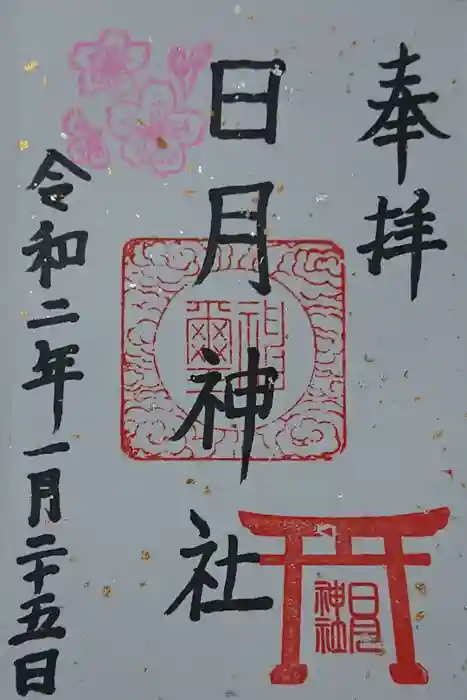 奉拝
日月神社
令和二年一月二十五日
神璽
日月
神社